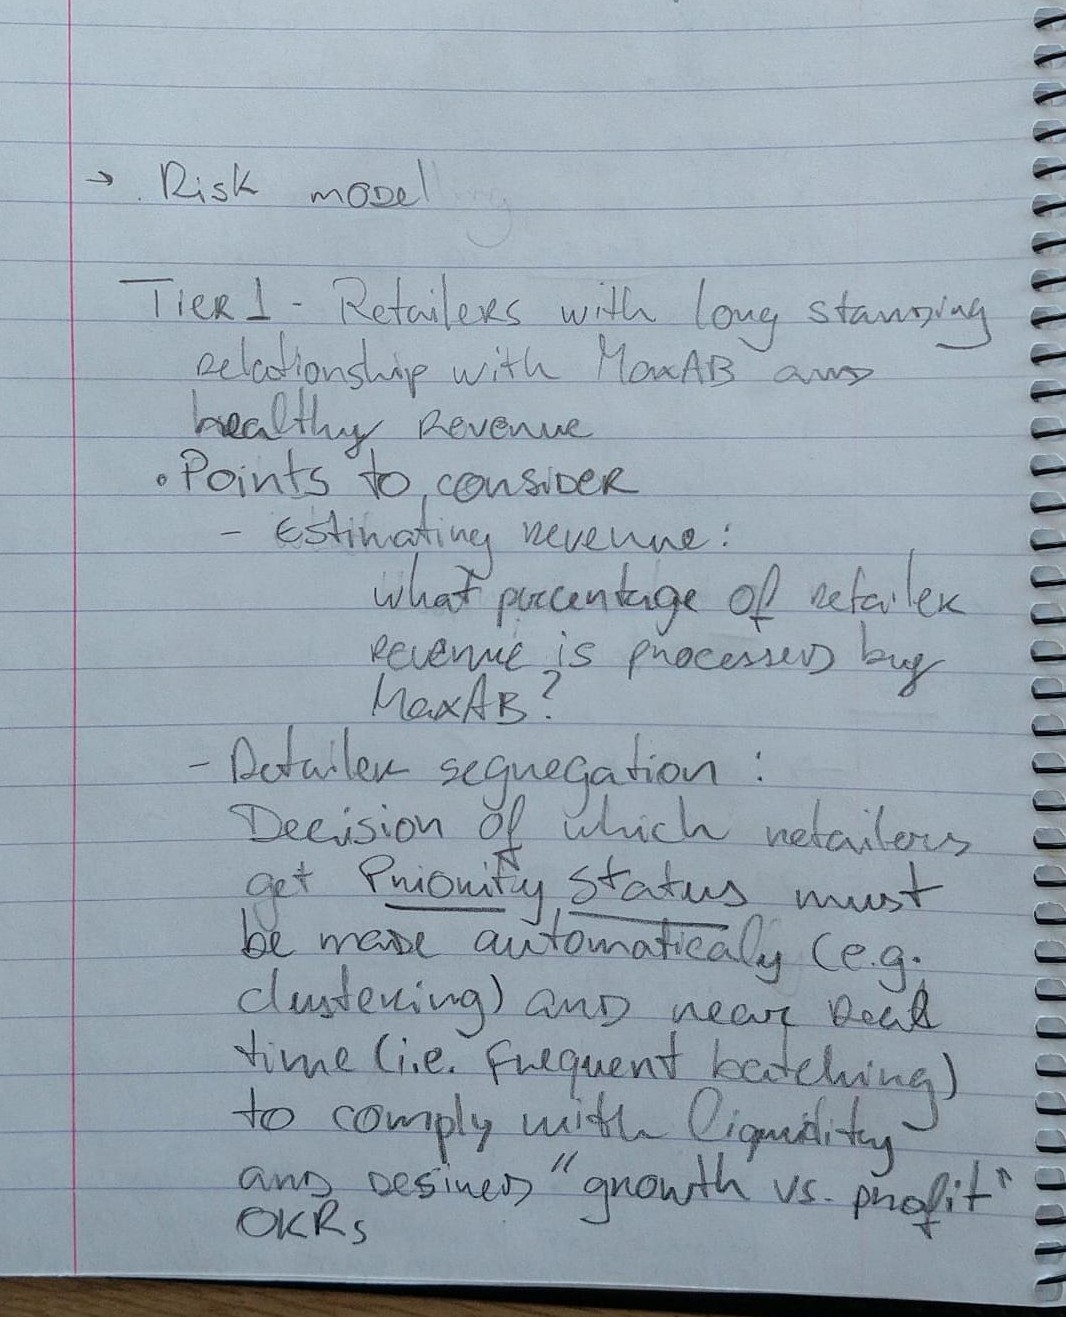 → Risk model
Tier 1 - Retailers with long standing
relationship with MaxAB and
healthy revenue
• Points to consider
- Estimating revenue:
what percentage of retailer
revenue is processed by
MaxAB?
- Retailer segregation:
Decision of which retailers
get Priority Status must
be made automaticaly (e.g.
clustering) and near real
time (i.e. frequent batching)
to comply with liquidity
and desired "growth vs. profit"
OKRs